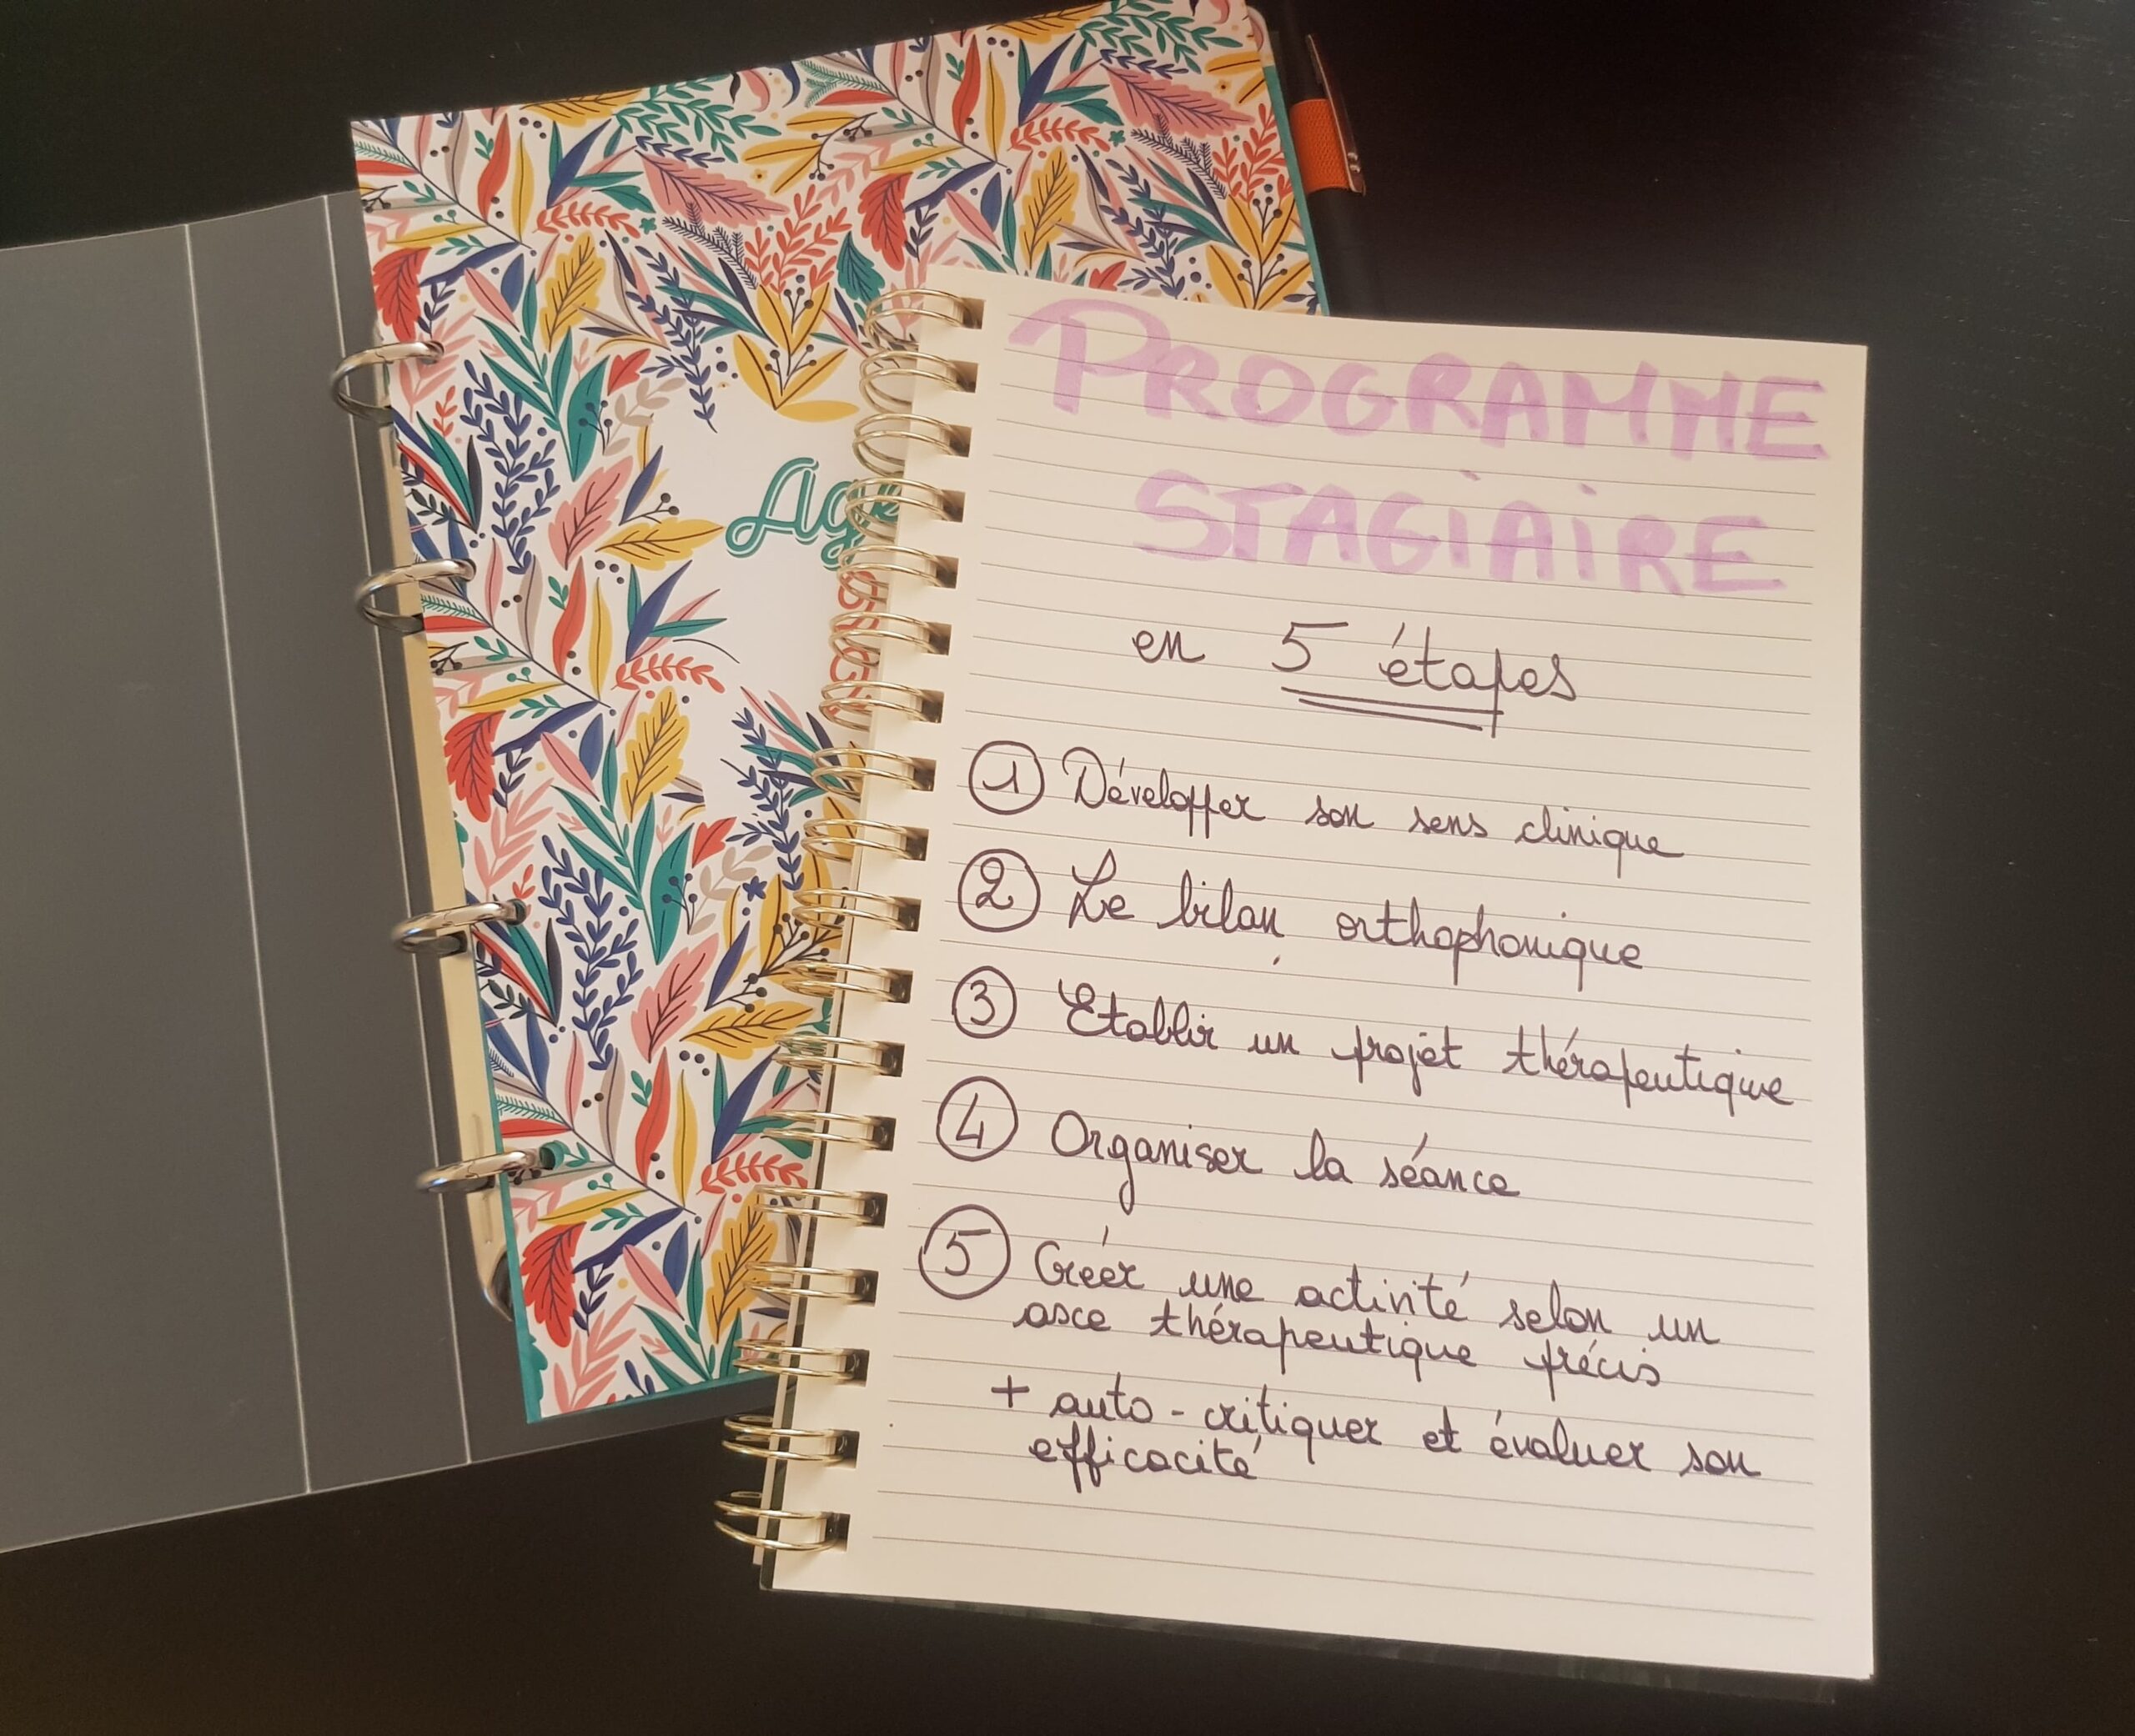 Ag
PROGRAMME
STAGIAIRE
en 5 étapes
1 Développer son sens clinique
2 Le bilan orthophonique
3 Etablir un projet thérapeutique
4 Organiser la séance
5 Créer une activité selon un
axe thérapeutique précis
+ auto-critiquer et évaluer son
efficacité